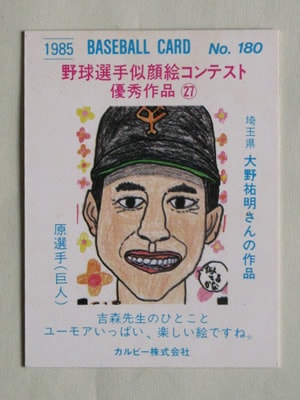 1985 BASEBALL CARD No. 180
野球選手似顔絵コンテスト
優秀作品 ㉗
埼玉県 大野祐明さんの作品
原選手(巨人)
吉森先生のひとこと
ユーモアいっぱい、楽しい絵ですね。
カルビー株式会社